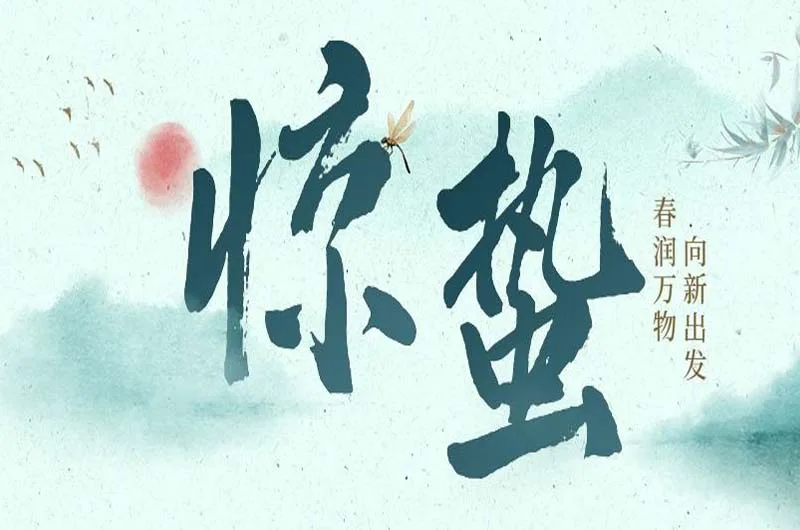 惊蛰
春润万物
向新出发